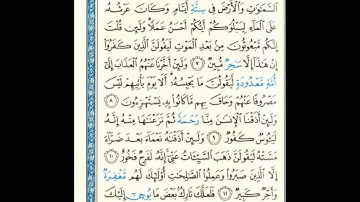 السَّمَٰوَٰتِ وَالْأَرْضَ فِي سِتَّةِ أَيَّامٍ وَكَانَ عَرْشُهُ
عَلَى الْمَاءِ لِيَبْلُوَكُمْ أَيُّكُمْ أَحْسَنُ عَمَلًا وَلَئِن قُلْتَ
إِنَّكُم مَّبْعُوثُونَ مِنۢ بَعْدِ الْمَوْتِ لَيَقُولَنَّ الَّذِينَ كَفَرُوا
إِنْ هَٰذَا إِلَّا سِحْرٌ مُّبِينٌ ٧ وَلَئِنْ أَخَّرْنَا عَنْهُمُ الْعَذَابَ إِلَىٰ
أُمَّةٍ مَّعْدُودَةٍ لَّيَقُولُنَّ مَا يَحْبِسُهُ أَلَا يَوْمَ يَأْتِيهِمْ لَيْسَ
مَصْرُوفًا عَنْهُمْ وَحَاقَ بِهِم مَّا كَانُوا بِهِ يَسْتَهْزِءُونَ ٨
وَلَئِنْ أَذَقْنَا الْإِنسَٰنَ مِنَّا رَحْمَةً ثُمَّ نَزَعْنَٰهَا مِنْهُ إِنَّهُ
لَيَـُٔوسٌ كَفُورٌ ٩ وَلَئِنْ أَذَقْنَٰهُ نَعْمَاءَ بَعْدَ ضَرَّاءَ
مَسَّتْهُ لَيَقُولَنَّ ذَهَبَ السَّيِّـَٔاتُ عَنِّي إِنَّهُ لَفَرِحٌ فَخُورٌ ١٠
إِلَّا الَّذِينَ صَبَرُوا وَعَمِلُوا الصَّٰلِحَٰتِ أُولَٰئِكَ لَهُم مَّغْفِرَةٌ
وَأَجْرٌ كَبِيرٌ ١١ فَلَعَلَّكَ تَارِكٌۢ بَعْضَ مَا يُوحَىٰ إِلَيْكَ